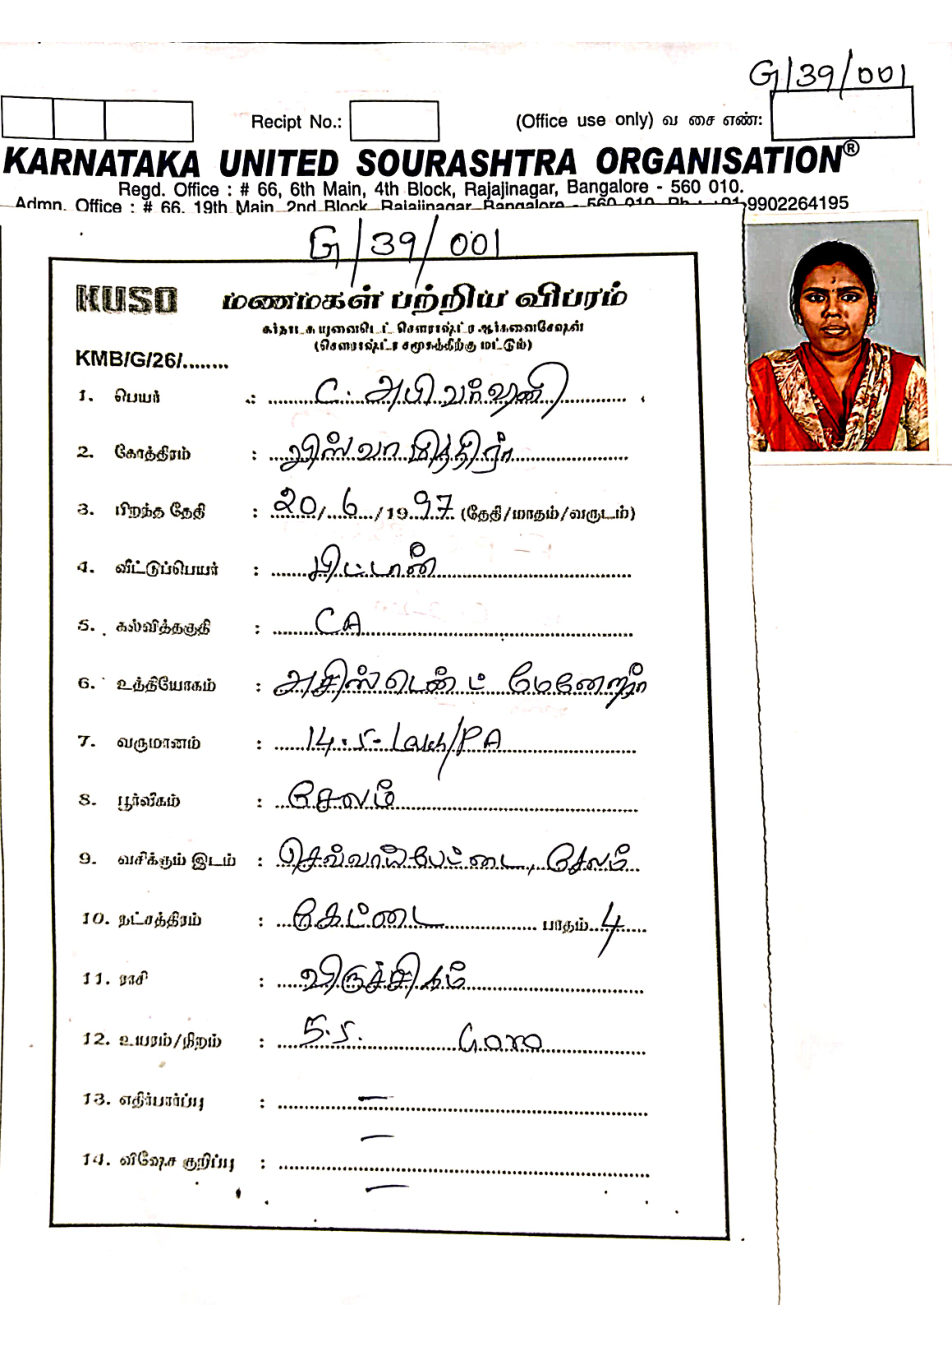 G/39/001
Recipt No.: (Office use only) வ சை எண்:
KARNATAKA UNITED SOURASHTRA ORGANISATION®
Regd. Office : # 66, 6th Main, 4th Block, Rajajinagar, Bangalore - 560 010.
Admn. Office : # 66, 19th Main, 2nd Block, Rajajinagar, Bangalore - 560 010. Ph : +91 9902264195
G/39/001
KUSO மணமகள் பற்றிய விபரம்
கர்நாடக யுனைடெட் சௌராஷ்ட்ர ஆர்கனைசேஷன்
(சௌராஷ்ட்ர சமூகத்திற்கு மட்டும்)
KMB/G/26/........
1. பெயர் : C. அபிவர்ஷினி
2. கோத்திரம் : விஸ்வாமித்திரர்
3. பிறந்த தேதி : 20/ 6 /1997 (தேதி/மாதம்/வருடம்)
4. வீட்டுப்பெயர் : மிட்டான்
5. கல்வித்தகுதி : CA
6. உத்தியோகம் : அசிஸ்டெண்ட் மேனேஜர்
7. வருமானம் : 14.5 Lakh/PA
8. பூர்வீகம் : சேலம்
9. வசிக்கும் இடம் : செவ்வாய்பேட்டை, சேலம்
10. நட்சத்திரம் : கேட்டை பாதம் 4
11. ராசி : விருச்சிகம்
12. உயரம்/நிறம் : 5.5.
13. எதிர்பார்ப்பு : —
14. விஷேச குறிப்பு : —